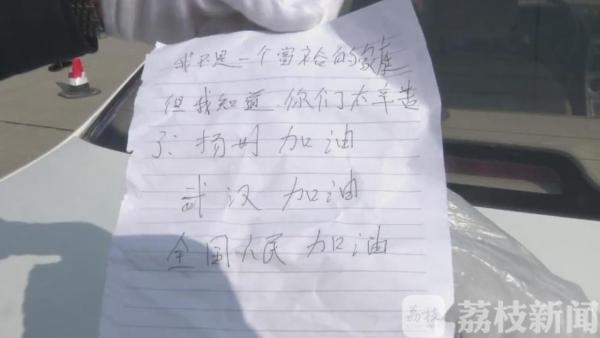 我不是一个富裕的家庭
但我知道 你们太辛造
了: 扬州 加油
武汉 加油
全国人民 加油
荔枝
荔枝新闻